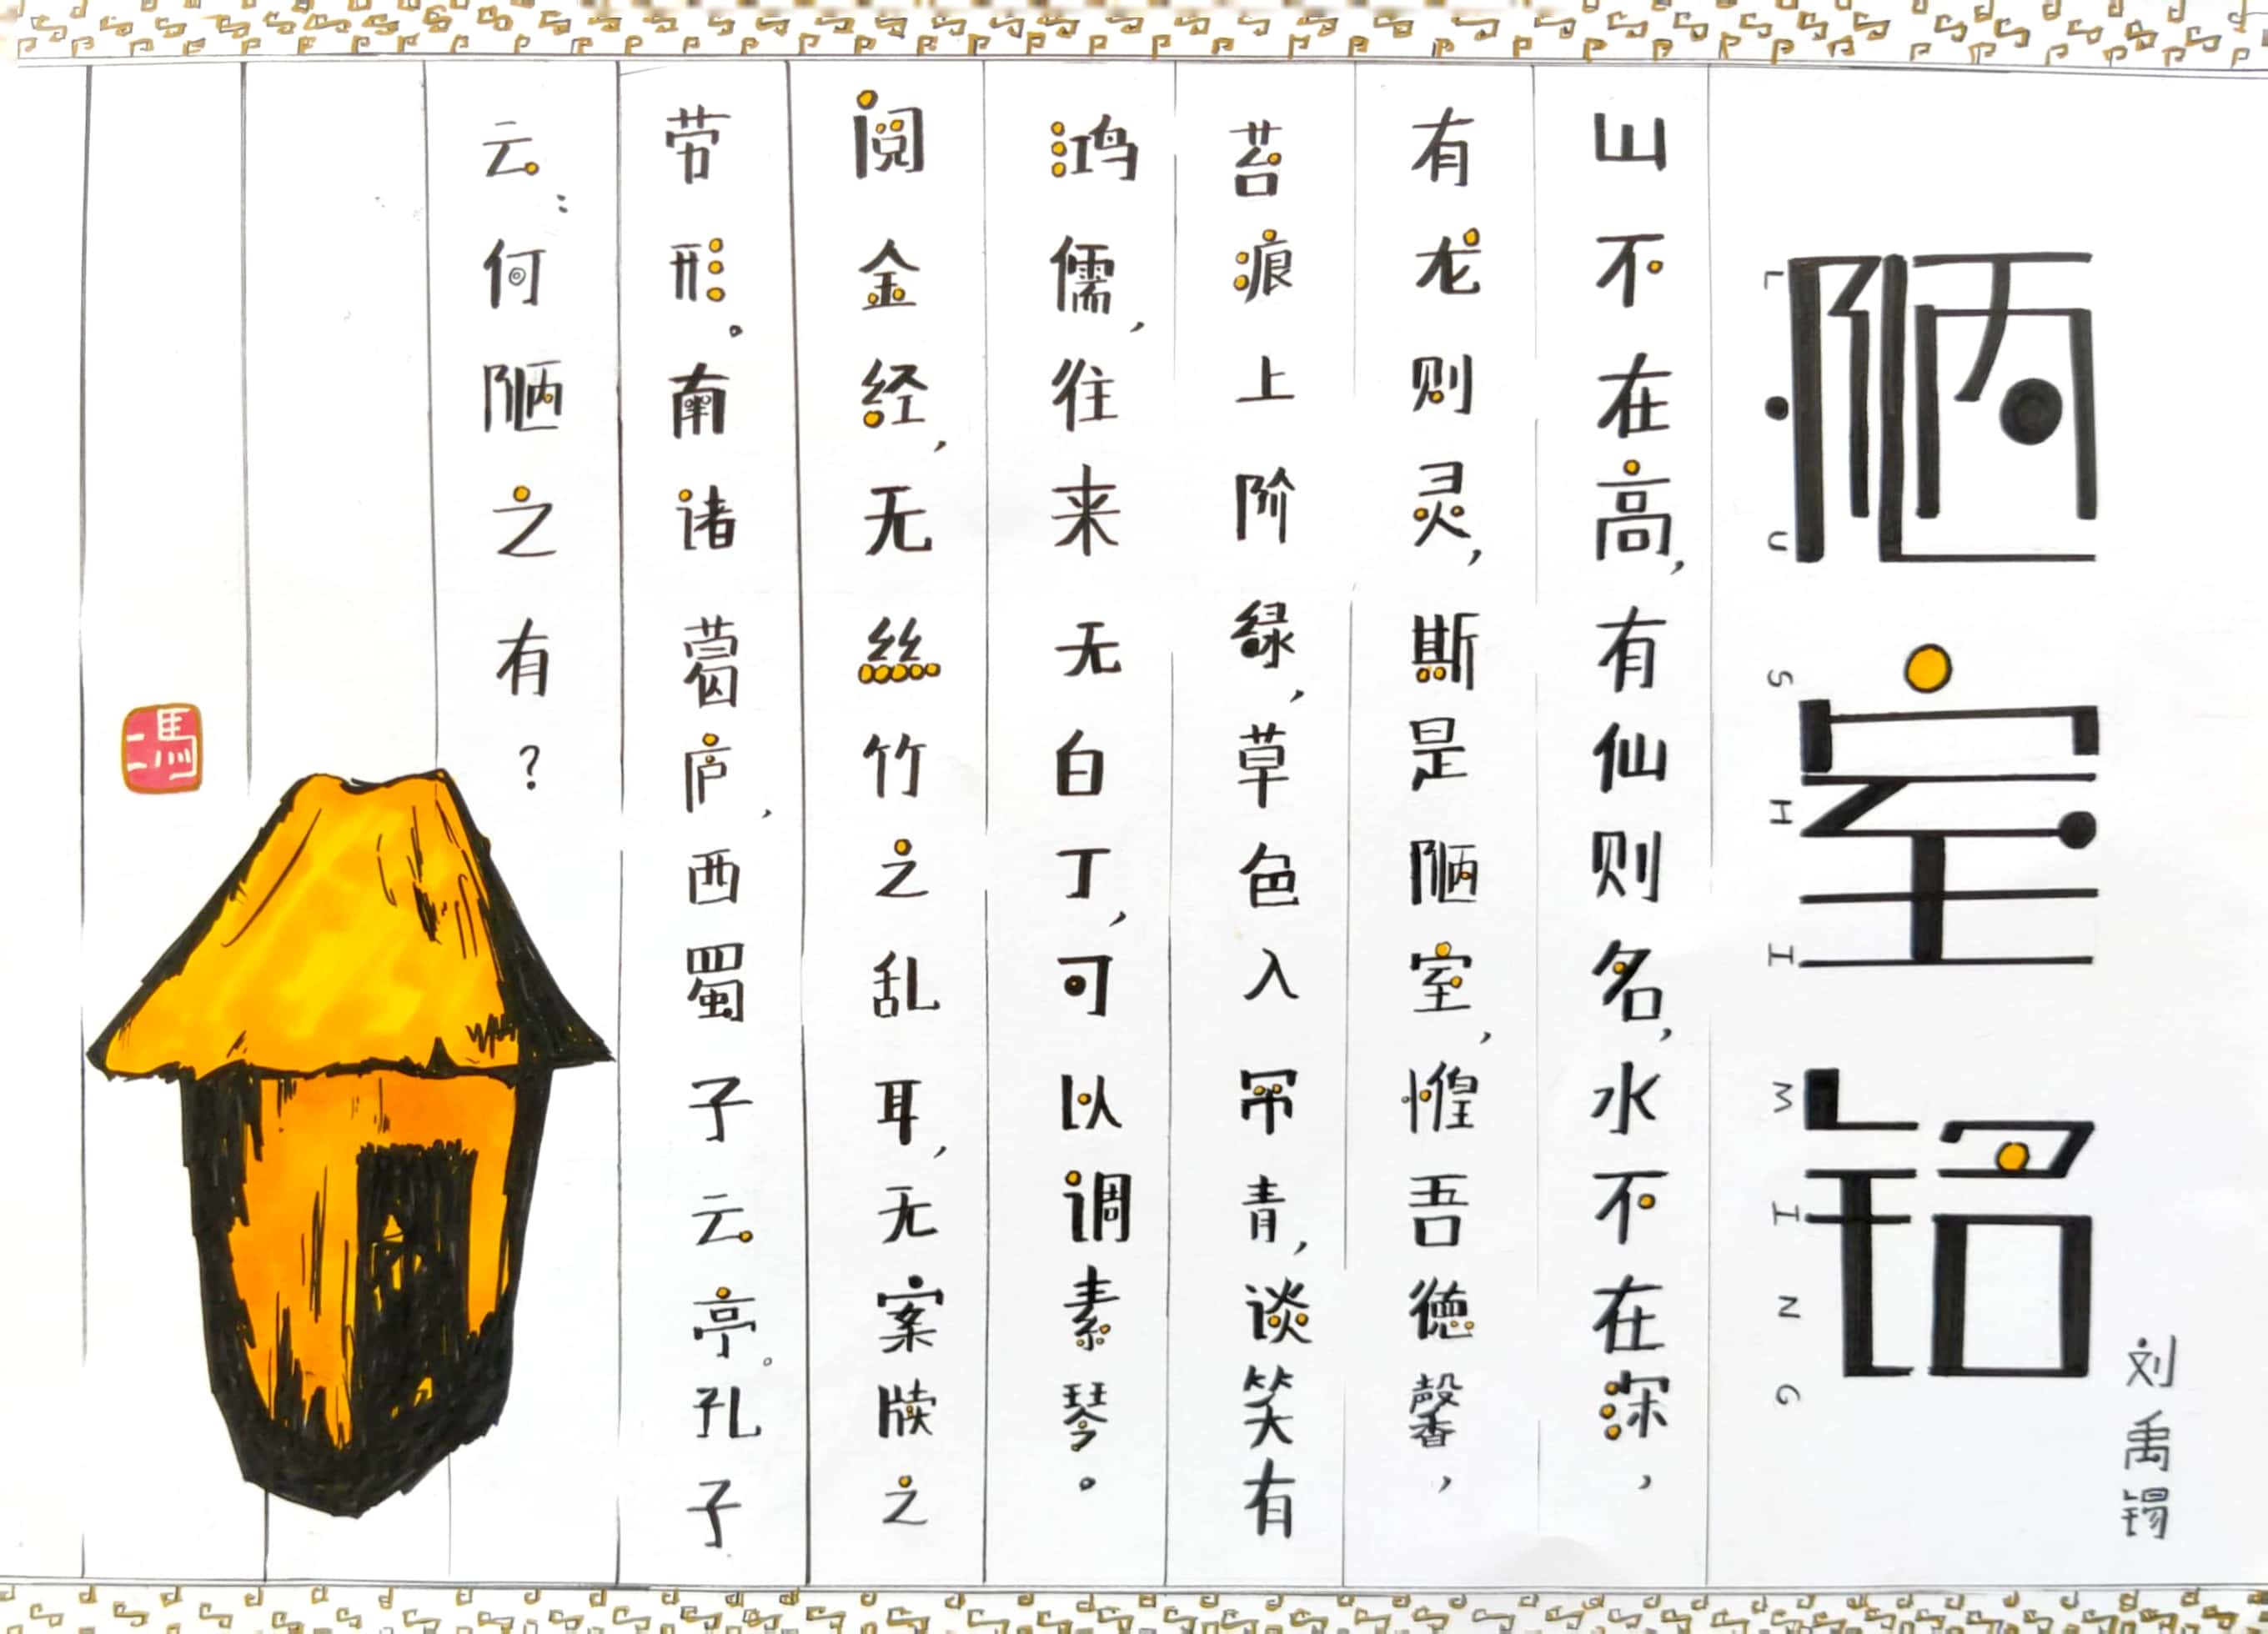 陋室铭
L·U SHI MING
刘禹锡
山不在高，有仙则名，水不在深，
有龙则灵，斯是陋室，惟吾德馨，
苔痕上阶绿，草色入帘青，谈笑有
鸿儒，往来无白丁，可以调素琴。
阅金经，无丝竹之乱耳，无案牍之
劳形。南诸葛庐，西蜀子云亭。孔子
云：何陋之有？
馮